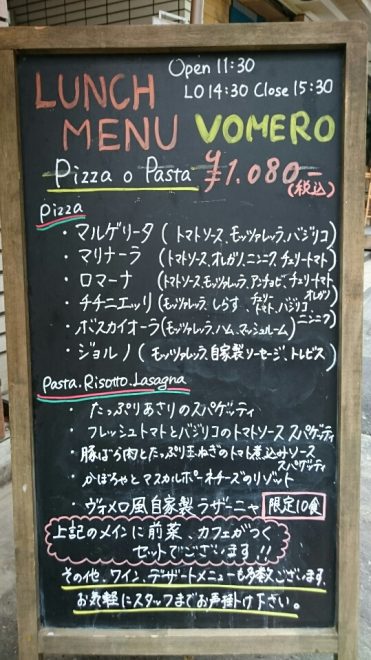 Open 11:30
LO 14:30 Close 15:30
LUNCH
MENU VOMERO
Pizza o Pasta ¥1.080-
(税込)
Pizza
・マルゲリータ (トマトソース、モッツァレッラ、バジリコ)
・マリナーラ (トマトソース、オレガノ、ニンニク、チェリートマト)
・ロマーナ (トマトソース、モッツァレラ、アンチョビ、チェリートマト
オレガノ)
・チチニエッリ (モッツァレッラ、しらす、チェリートマト、バジリコ
ニンニク)
・ボスカイオーラ (モッツァレッラ、ハム、マッシュルーム)
・ジョルノ (モッツァレッラ、自家製ソーセージ、トレビス)
Pasta.Risotto.Lasagna
・たっぷりあさりのスパゲッティ
・フレッシュトマトとバジリコのトマトソース スパゲッティ
・豚ばら肉とたっぷり玉ねぎのトマト煮込みソース
スパゲッティ
・かぼちゃとマスカルポーネチーズのリゾット
・ヴォメロ風自家製ラザーニャ 限定10食
上記のメインに前菜、カフェがつく
セットでございます!!
その他、ワイン、デザートメニューも多数ございます。
お気軽にスタッフまでお声掛け下さい。